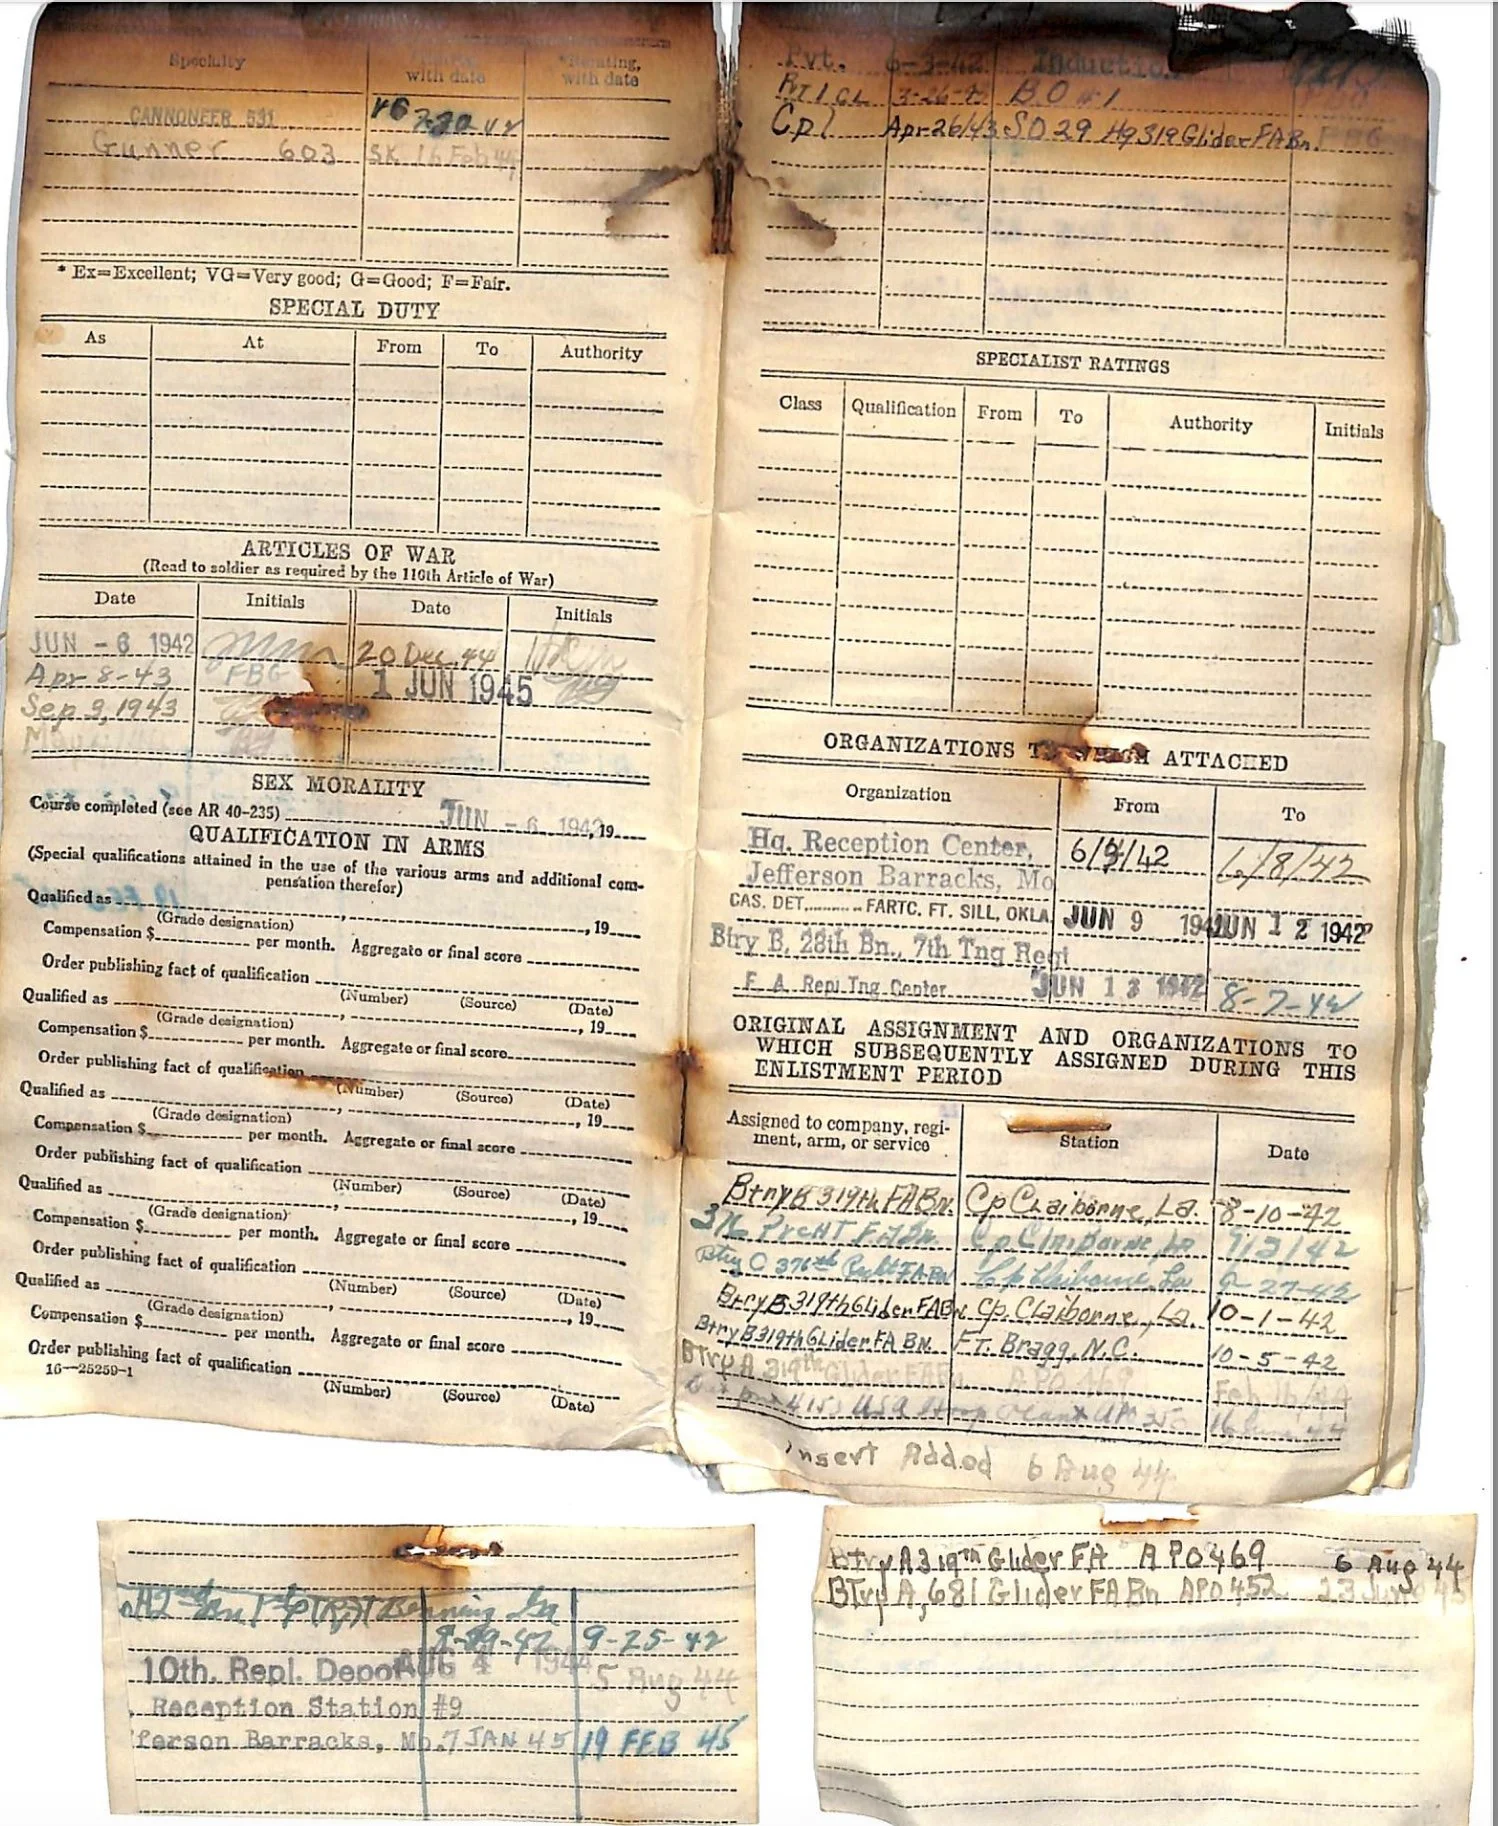 Specialty
with date
*Rerating,
with date
CANNONEER 531
Gunner 603 SK 16 Feb 44
* Ex=Excellent; VG=Very good; G=Good; F=Fair.
SPECIAL DUTY
As At From To Authority
ARTICLES OF WAR
(Read to soldier as required by the 110th Article of War)
Date Initials Date Initials
JUN - 6 1942 20 Dec. 44
Apr 8-43 FBG 1 JUN 1945
Sep 9, 1943
SEX MORALITY
Course completed (see AR 40-235) JUN - 6 1942, 19
QUALIFICATION IN ARMS
(Special qualifications attained in the use of the various arms and additional com-
pensation therefor)
Qualified as , , 19
(Grade designation)
Compensation $ per month. Aggregate or final score
Order publishing fact of qualification
(Number) (Source) (Date)
Qualified as , , 19
(Grade designation)
Compensation $ per month. Aggregate or final score
Order publishing fact of qualification
(Number) (Source) (Date)
Qualified as , , 19
(Grade designation)
Compensation $ per month. Aggregate or final score
Order publishing fact of qualification
(Number) (Source) (Date)
Qualified as , , 19
(Grade designation)
Compensation $ per month. Aggregate or final score
Order publishing fact of qualification
(Number) (Source) (Date)
Qualified as , , 19
(Grade designation)
Compensation $ per month. Aggregate or final score
Order publishing fact of qualification
16—25259-1
(Number) (Source) (Date)
Pvt. 6-3-42 Induction
BO #1
Cpl Apr 26/43 SO 29 Hq 319 Glider FA Bn.
SPECIALIST RATINGS
Class Qualification From To Authority Initials
ORGANIZATIONS TO WHICH ATTACHED
Organization From To
Hq. Reception Center, 6/4/42 6/8/42
Jefferson Barracks, Mo
CAS. DET. FARTC. FT. SILL, OKLA. JUN 9 1942 JUN 12 1942
Btry B, 28th Bn., 7th Tng Regt
F. A. Repl Tng Center JUN 13 1942 8-7-42
ORIGINAL ASSIGNMENT AND ORGANIZATIONS TO
WHICH SUBSEQUENTLY ASSIGNED DURING THIS
ENLISTMENT PERIOD
Assigned to company, regi-
ment, arm, or service
Station Date
Btry B 319th FA Bn. Cp Claiborne, La. 8-10-42
376 Prcht FA Bn. Cp Claiborne, La
Btry C 376th Prcht FA BN Cp Claiborne, La
Btry B 319th Glider FA Bn Cp. Claiborne, La. 10-1-42
Btry B 319th Glider FA BN. FT. Bragg, N.C. 10-5-42
Btry A 319th Glider FA Bn APO 469 Feb 16/44
Insert Added 6 Aug 44
Benning Ga
9-25-42
10th. Repl. Depot AUG 4 1944 5 Aug 44
Reception Station #9
fferson Barracks, Mo. 7 JAN 45 19 FEB 45
Btry A 319th Glider FA APO 469 6 Aug 44
BTry A, 681 Glider FA Bn APO 452 23 June 45